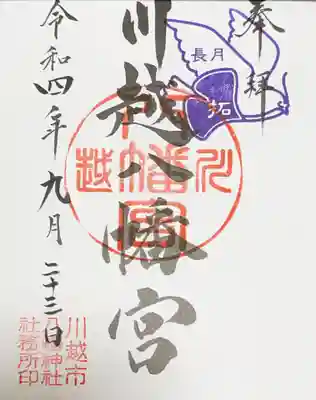 奉拝
長月
拓
川越八幡宮
川越
八幡宮
令和四年九月二十三日
川越市
八幡神社
社務所印